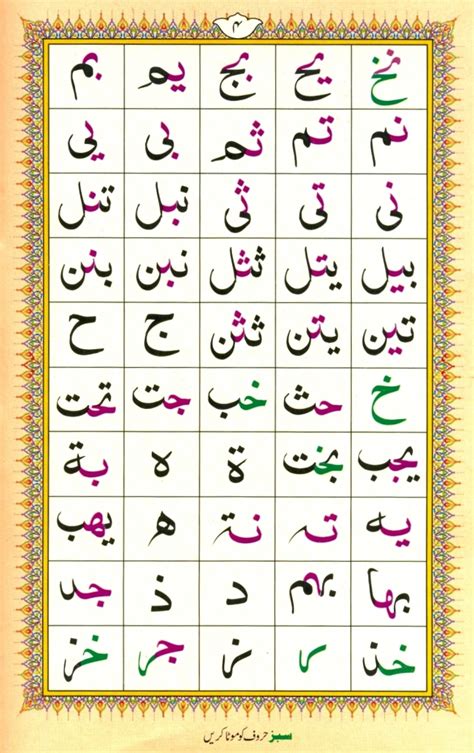 ۴
نخ یح بج یم بم
نم تم ثم بی یی
نی تی ثی نبل تنل
بیل یتل ثثل نبن بنن
تین یتن ثثن ج ح
خ حث خب جت تحت
یجب بخت ة ہ بة
یہ تہ نة ھ یھب
بہا بہم د ذ جد
خذ ر ز جر خز
سبز حروف کو موٹا کریں